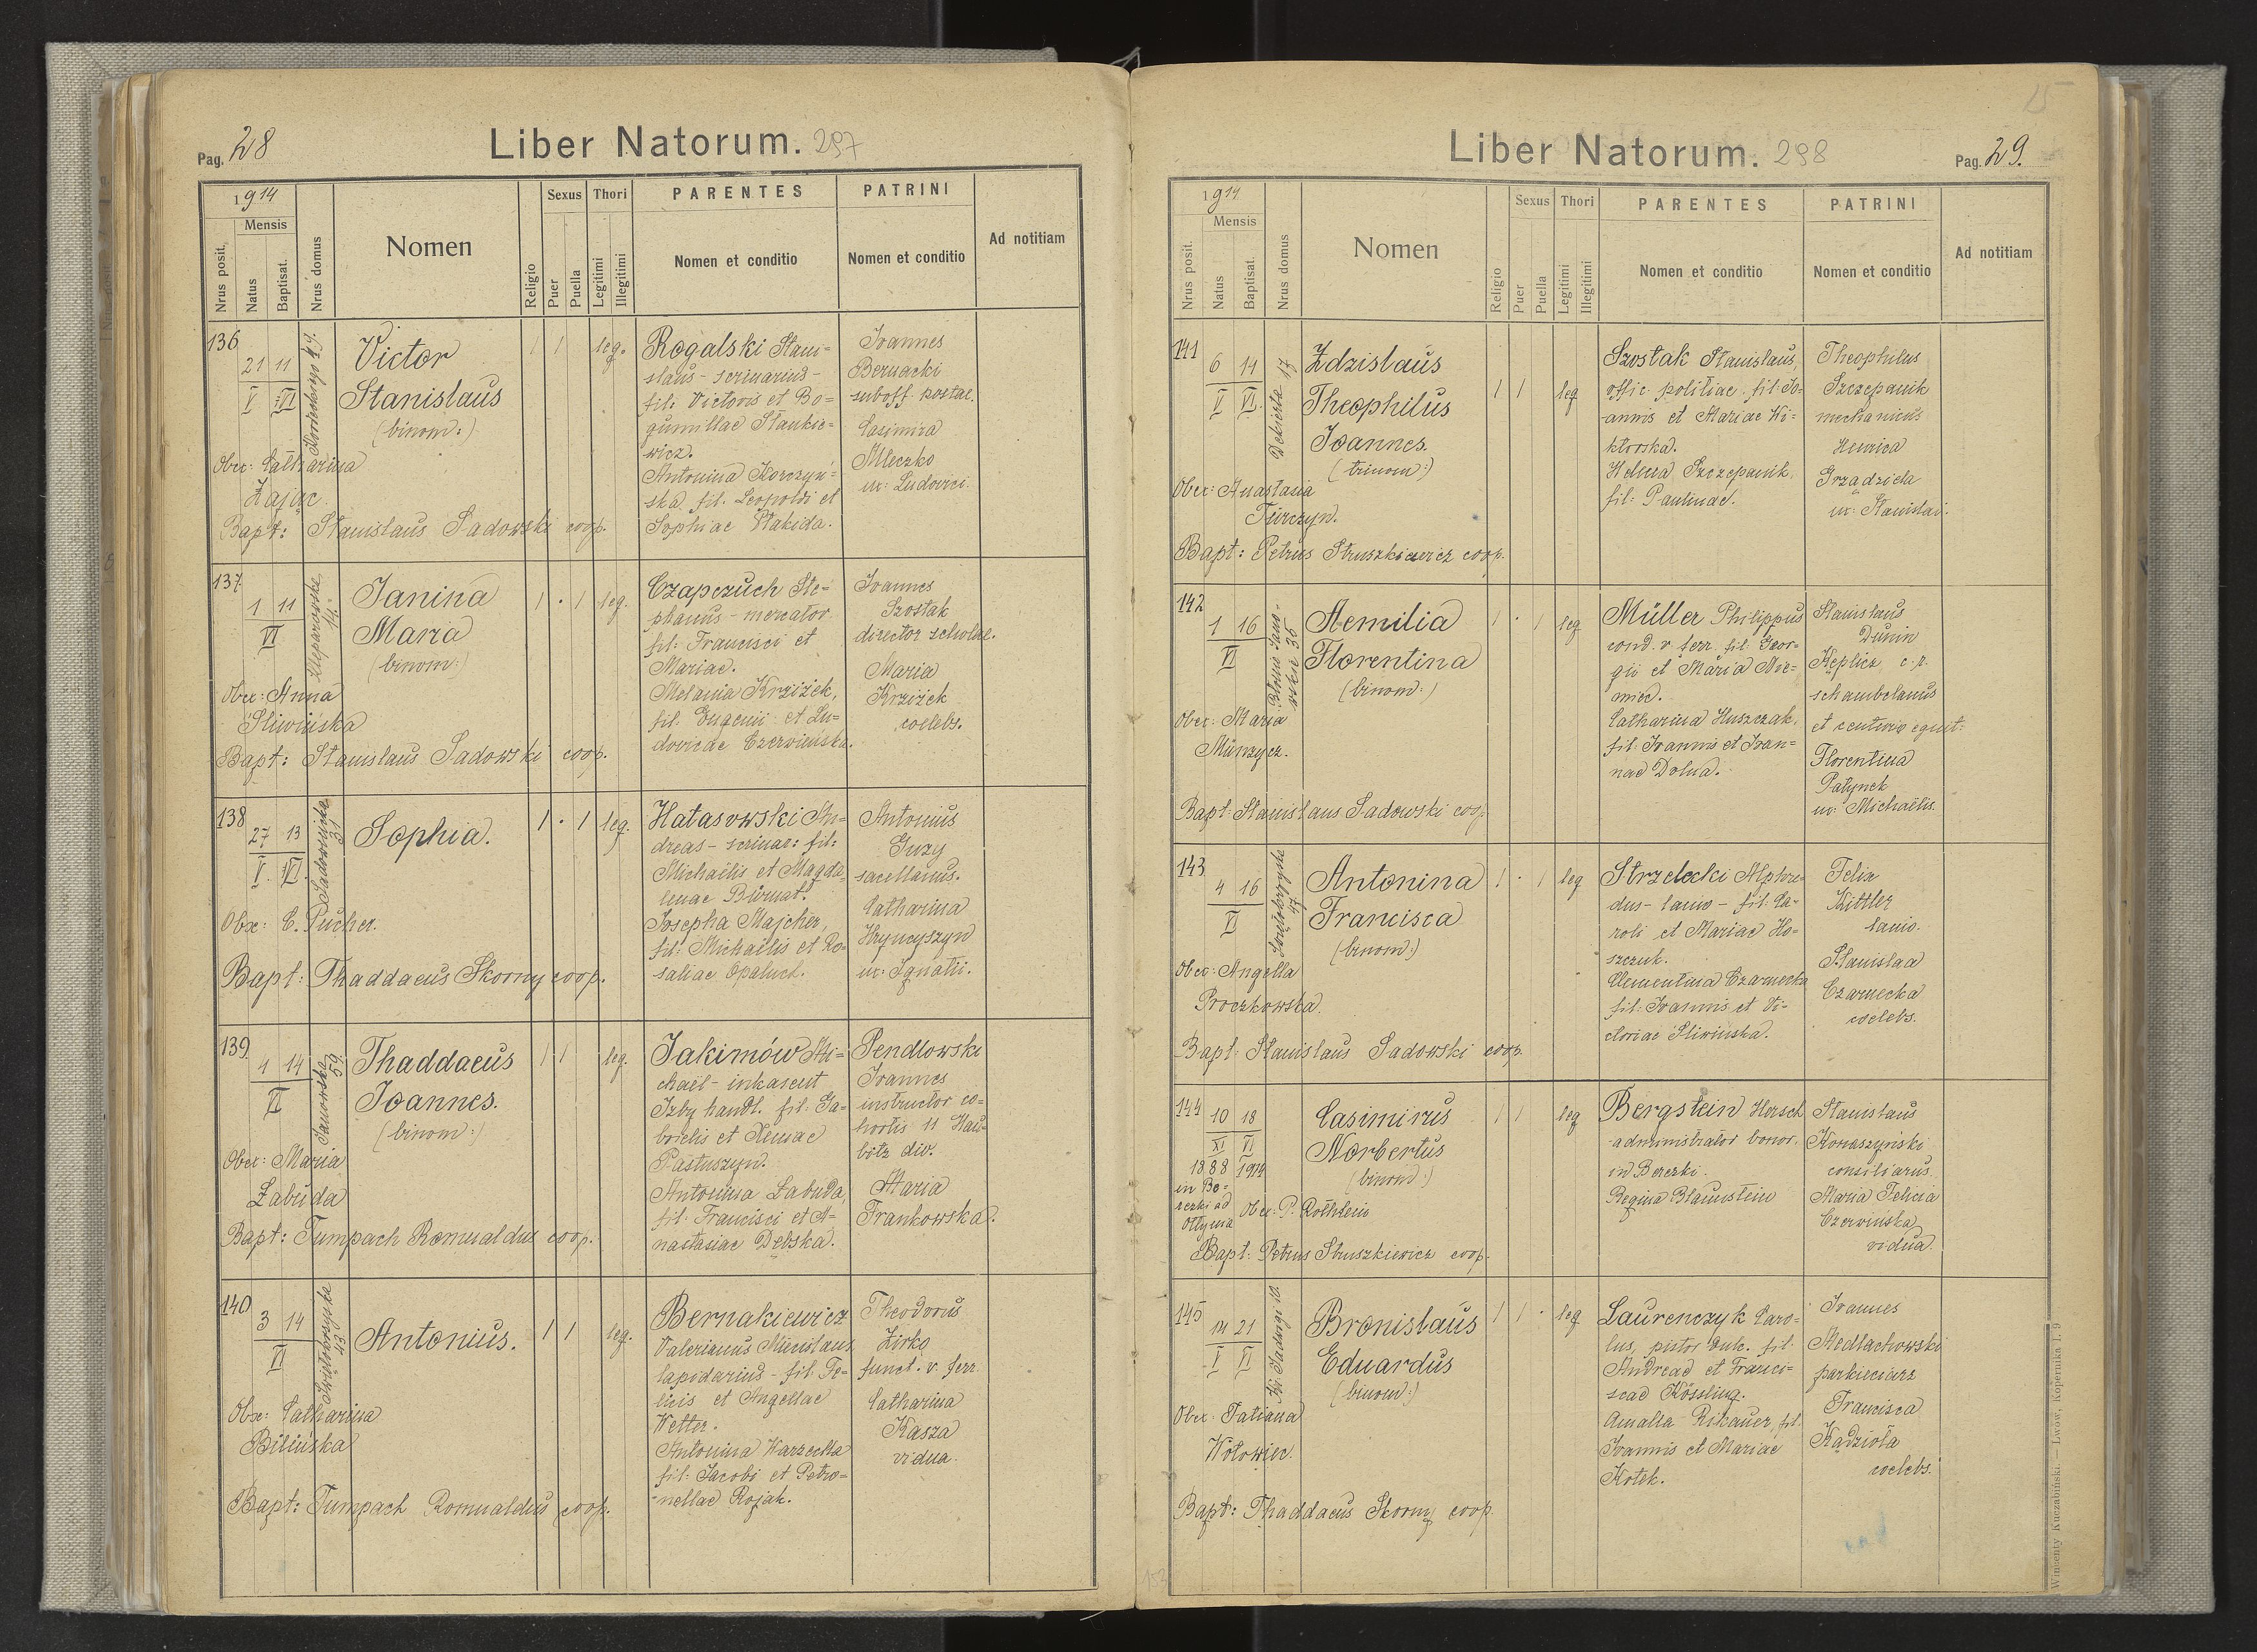 Pag. 28
Liber Natorum. 297
1914
Mensis
Nrus posit.
Natus
Baptisat.
Nrus domus
Nomen
Religio
Sexus
Puer
Puella
Thori
Legitimi
Illegitimi
PARENTES
Nomen et conditio
PATRINI
Nomen et conditio
Ad notitiam
136
21 11
V VI
Victor
Stanislaus
(binom:)
1 1 leg.
Obex: Catharina
Zając
Bapt: Stanislaus Sadowski coop.
Rogalski Stani=
slaus - scrinarius -
fil: Victoris et Bo=
gumillae Stankie=
wicz.
Antonina Korczyń=
ska, fil. Leopoldi et
Sophiae Ptakida.
Ioannes
Bernacki
suboff. postal.
Casimira
Mleczko
ux: Ludovici.
137
1 11
VI
Kleparowska
14.
Janina
Maria
(binom:)
1 . 1 leg.
Obex: Anna
Śliwińska
Bapt: Stanislaus Sadowski coop.
Czapczuch Ste=
phanus - mercator
fil: Francisci et
Mariae.
Melania Krziżek,
fil: Eugenii et Lu=
dovicae Czerwińska.
Ioannes
Szostak
director scholae.
Maria
Krziżek
coelebs.
138
27 13
V. VI.
Sadownicka
31
Sophia.
1 . 1 leg.
Obex: C. Pucher.
Bapt: Thaddaeus Skorny coop.
Hatasowski An=
dreas - scrinar: fil:
Michaëlis et Magda=
lenae Biernat.
Josepha Majcher,
fil: Michaëlis et Ro=
saliae Opaluch.
Antonius
Guzy
sacellanus.
Catharina
Hryncyszyn
ux: Ignatii.
139
1 14
VI
Janowska
59.
Thaddaeus
Joannes.
(binom:)
1 1 leg.
Obex: Maria
Łabuda
Bapt: Tumpach Romualdus coop.
Jakimów Mi=
chaël - inkasent
Izby handl. fil: Ga=
brielis et Xeniae
Pastuszyn.
Antonina Łabuda,
fil: Francisci et A=
nastasiae Dębska.
Pendlowski
Ioannes
instructor co=
hortis 11 Hau=
bitz div.
Maria
Frankowska.
140
3 14
VI
Antonius.
1 1 leg.
Obex: Catharina
Bilińska
Bapt: Tumpach Romualdus coop.
Bernakiewicz
Valerianus Miecislaus
lapidarius - fil: Fe=
licis et Angellae
Wetter.
Antonina Warzecha
fil: Jacobi et Petro=
nellae Rojak.
Theodorus
Zirko
funct. v. ferr.
Catharina
Kasza
vidua.
Liber Natorum. 298
Pag. 29.
1914
Mensis
Nrus posit.
Natus
Baptisat.
Nrus domus
Nomen
Religio
Sexus
Puer
Puella
Thori
Legitimi
Illegitimi
PARENTES
Nomen et conditio
PATRINI
Nomen et conditio
Ad notitiam
141
6 14
V VI.
Dekierta 17
Zdzislaus
Theophilus
Joannes.
(trinom:)
1 1 leg
Obex: Anastasia
Turczyn.
Bapt: Petrus Struszkiewicz coop.
Szostak Stanislaus,
offic. politiae. fil: Jo=
annis et Mariae Wi=
ktorska.
Helena Szczepanik,
fil: Paulinae.
Theophilus
Szczepanik
mechanicus
Henrica
Grządziela
ux: Stanislai.
142
1 16
VI
Aemilia
Florentina
(binom:)
1 . 1 leg
Obex: Maria
Münzycz.
Bapt: Stanislaus Sadowski coop.
Müller Philippus
cond. v. ferr. fil: Geor=
gii et Maria Nie=
miec.
Catharina Huszczak,
fil: Ioannis et Ioan=
nae Dolna.
Stanislaus
Dunin
Keplicz, c. r.
schambelanus
et centurio equit:
Florentina
Patynek
ux: Michaëlis.
143
4 16
VI
Świętokrzyska
17
Antonina
Francisca
(binom:)
1 . 1 leg
Obex: Angella
Proczkowska.
Bapt: Stanislaus Sadowski coop.
Strzelecki Alphre=
dus - lanio - fil: Ca=
roli et Mariae Ho=
szczuk.
Clementina Czarnecka
fil: Ioannis et Vi=
ctoriae Śliwińska.
Felix
Kittler
lanio.
Stanislaa
Czarnecka
coelebs.
144
10 18
XI VI
1888 1914
in Be=
rezki ad
Ottynia
Casimirus
Norbertus
(binom:)
1 1 leg
Obex: P. Rothlein
Bapt: Petrus Struszkiewicz coop.
Bergstein Hersch
administrator bonor.
in Berezki.
Regina Blaustein
Stanislaus
Konaszyński
consiliarus.
Maria Felicia
Czerwińska
vidua.
145
14 21
V VI
Kr. Jadwigi 12
Bronislaus
Eduardus
(binom:)
1 1 . leg
Obex: Tatiana
Wołowiec.
Bapt: Thaddaeus Skorny coop.
Laurenczyk Caro=
lus, pistor dulc. fil:
Andreae et Franci=
scae Kössling.
Amalia Rikauer, fil.
Ioannis et Mariae
Kotek.
Ioannes
Medlachowski
parkieciarz
Francisca
Kądzioła
coelebs.
Wincenty Kuczabiński. — Lwów, Kopernika l. 9